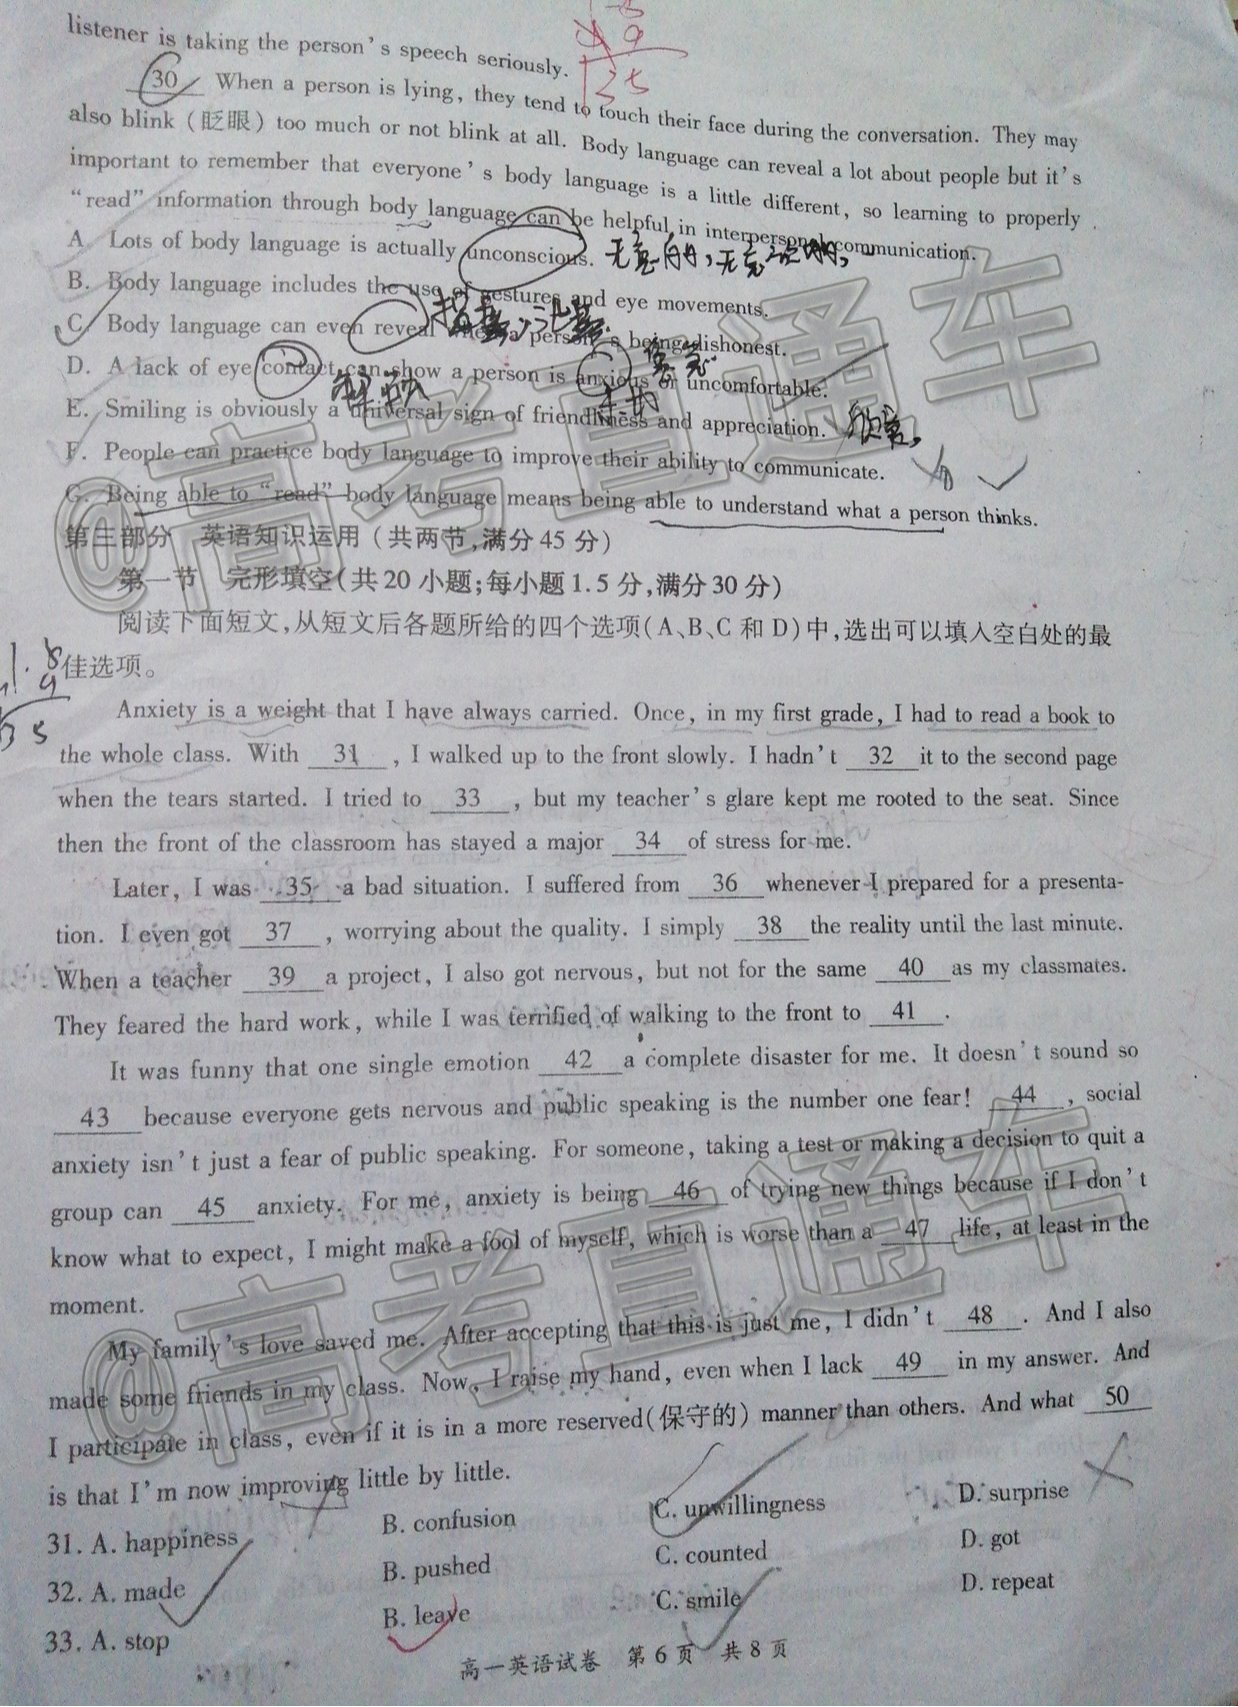 listener is taking the person's speech seriously.
30 When a person is lying, they tend to touch their face during the conversation. They may
also blink (眨眼) too much or not blink at all. Body language can reveal a lot about people but it's
important to remember that everyone's body language is a little different, so learning to properly
"read" information through body language can be helpful in interpersonal communication.
A. Lots of body language is actually unconscious. 无意的,无意识的,
B. Body language includes the use of gestures and eye movements.
C. Body language can even reveal when a person's being dishonest.
D. A lack of eye contact can show a person is anxious or uncomfortable.
E. Smiling is obviously a universal sign of friendliness and appreciation.
F. People can practice body language to improve their ability to communicate.
G. Being able to "read" body language means being able to understand what a person thinks.
第三部分 英语知识运用(共两节,满分45分)
第一节 完形填空(共20小题;每小题1.5分,满分30分)
阅读下面短文,从短文后各题所给的四个选项(A、B、C和D)中,选出可以填入空白处的最
佳选项。
Anxiety is a weight that I have always carried. Once, in my first grade, I had to read a book to
the whole class. With 31 , I walked up to the front slowly. I hadn't 32 it to the second page
when the tears started. I tried to 33 , but my teacher's glare kept me rooted to the seat. Since
then the front of the classroom has stayed a major 34 of stress for me.
Later, I was 35 a bad situation. I suffered from 36 whenever I prepared for a presenta-
tion. I even got 37 , worrying about the quality. I simply 38 the reality until the last minute.
When a teacher 39 a project, I also got nervous, but not for the same 40 as my classmates.
They feared the hard work, while I was terrified of walking to the front to 41 .
It was funny that one single emotion 42 a complete disaster for me. It doesn't sound so
43 because everyone gets nervous and public speaking is the number one fear! 44 , social
anxiety isn't just a fear of public speaking. For someone, taking a test or making a decision to quit a
group can 45 anxiety. For me, anxiety is being 46 of trying new things because if I don't
know what to expect, I might make a fool of myself, which is worse than a 47 life, at least in the
moment.
My family's love saved me. After accepting that this is just me, I didn't 48 . And I also
made some friends in my class. Now, I raise my hand, even when I lack 49 in my answer. And
I participate in class, even if it is in a more reserved(保守的) manner than others. And what 50
is that I'm now improving little by little.
31. A. happiness B. confusion C. unwillingness D. surprise
32. A. made B. pushed C. counted D. got
33. A. stop B. leave C. smile D. repeat
高一英语试卷 第6页 共8页
@高考直通车
@高考直通车